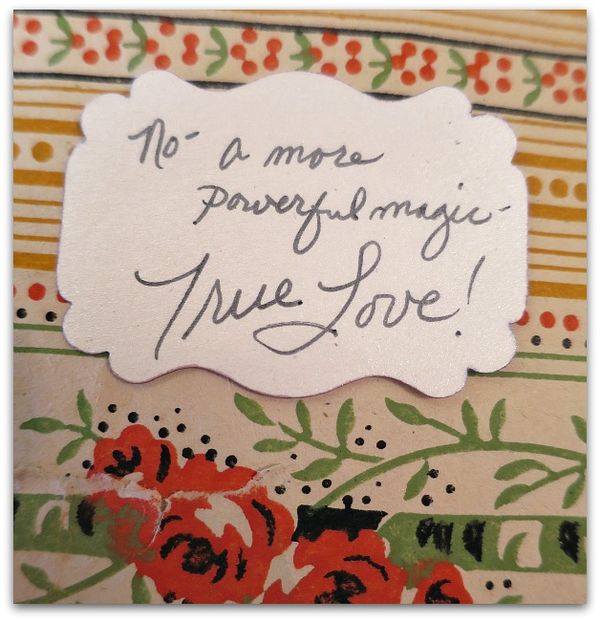 No- a more
powerful magic-
True Love!